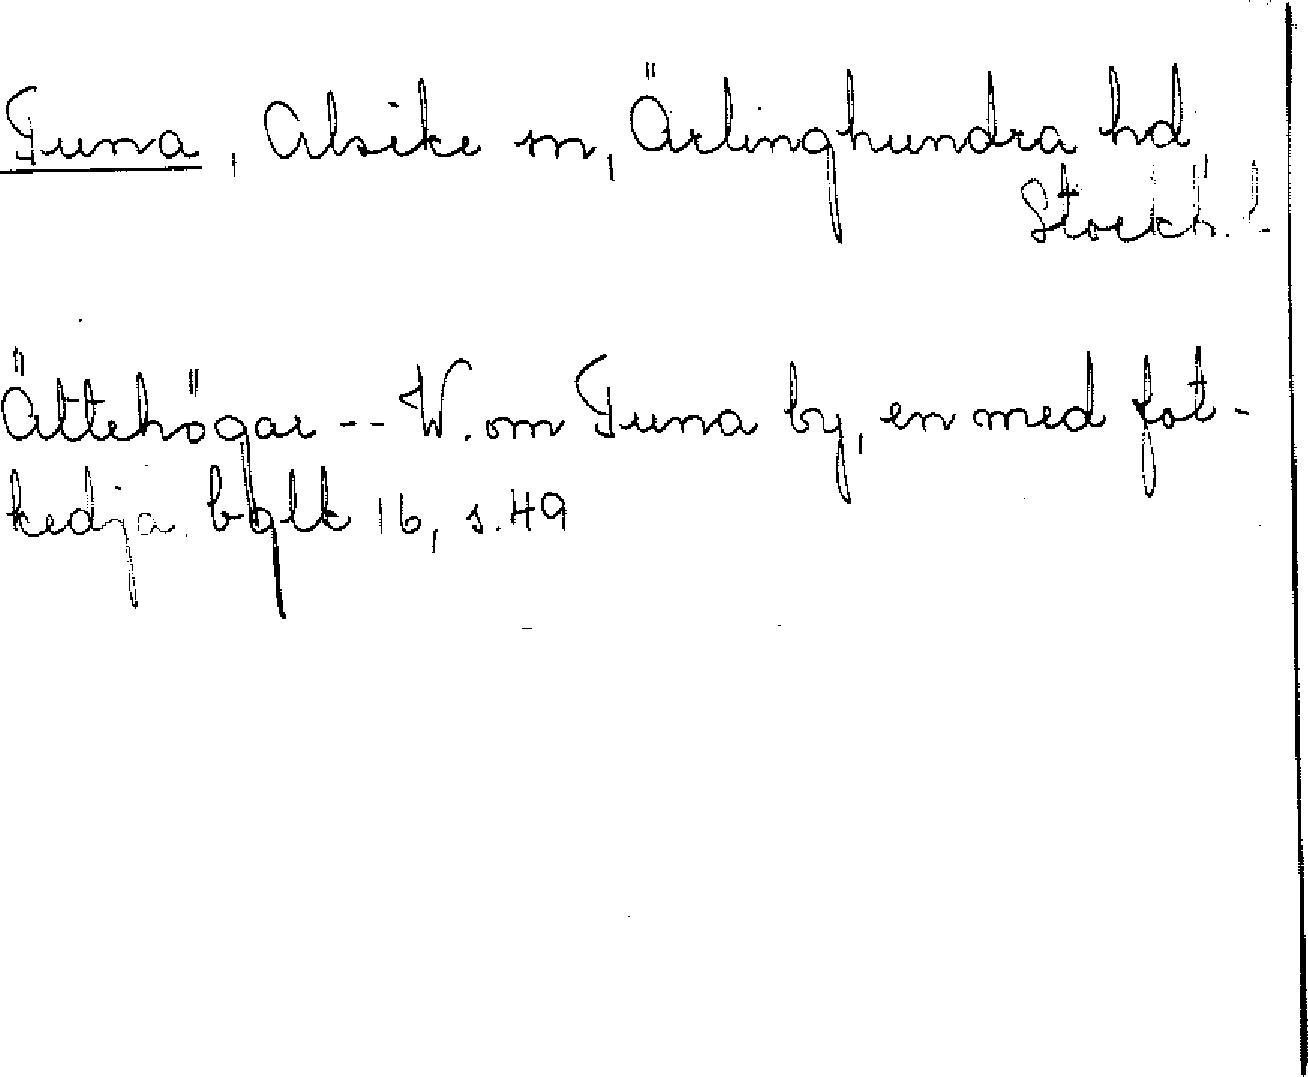 Tuna, Alsike sn, Ärlinghundra hd
Stockh. l.
Ättehögar -- V. om Tuna by, en med fot-
kedja. bglt 16, s. 49